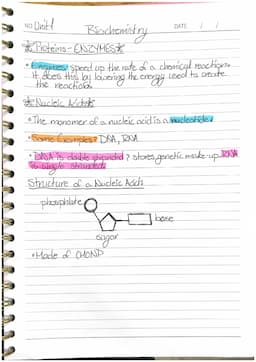 NO. Unit 1 Biochemistry DATE / /
★Proteins - ENZYMES★
• Enzymes: speed up the rate of a chemical reactions.
It does this by lowering the energy used to create
the reactions
★Nucleic Acids★
• The monomer of a nucleic acid is a nucleotide.
• Some Examples: DNA, RNA
• DNA is double stranded & stores genetic make-up. RNA
is single stranded.
Structure of a Nucleic Acid:
phosphate
base
sugar
• Made of CHONP